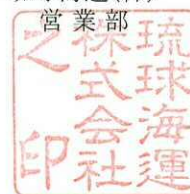 営業部
琉球海運
株式会社
之印